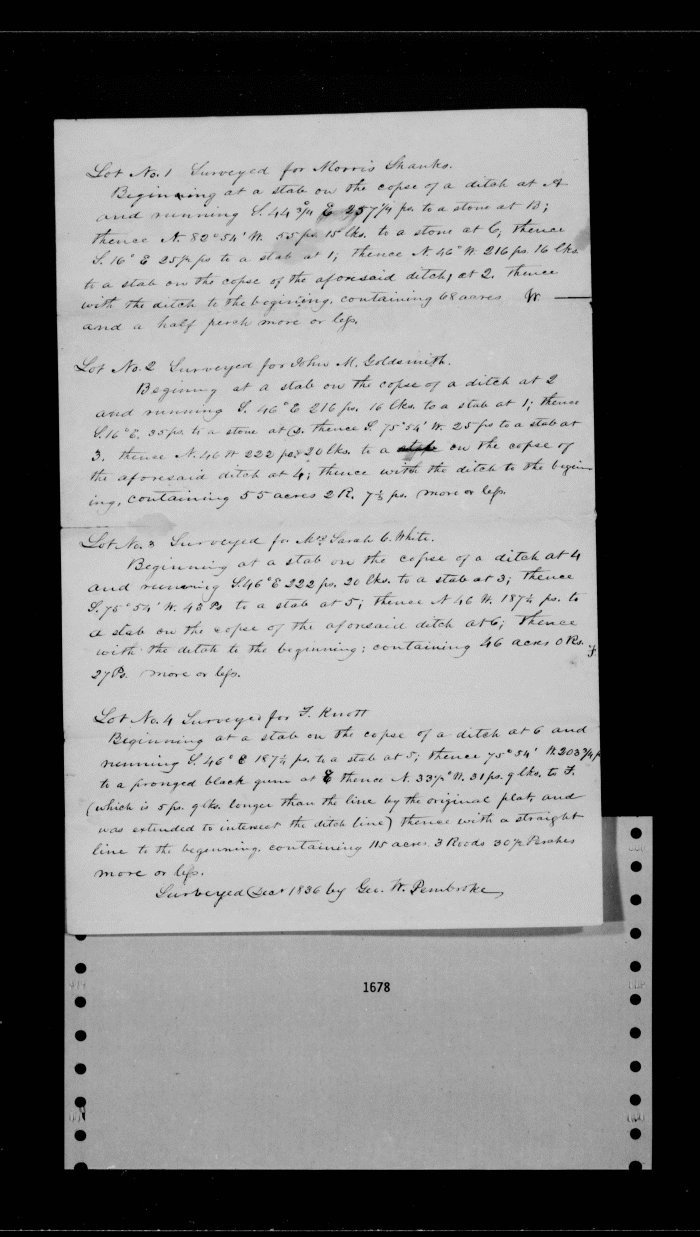 Lot No. 1 Surveyed for Morris Shanks.
Beginning at a stab on the copse of a ditch at A
and running S. 44 3/4 E 257 1/4 ps. to a stone at B;
thence N. 82° 54' W. 55 ps. 15 lks. to a stone at C, thence
S. 16° E 25 1/2 ps to a stab at 1; thence N. 46° W. 216 ps. 16 lks.
to a stab on the copse of the aforesaid ditch, at 2. thence
with the ditch to the begining, containing 68 acres
and a half perch more or less.
Lot No. 2 Surveyed for John M. Goldsmith.
Begining at a stab on the copse of a ditch at 2
and running S. 46° E 216 ps. 16 lks. to a stab at 1; thence
S. 16° E. 35 ps. to a stone at D. thence S. 75° 54' W. 25 ps to a stab at
3. thence N. 46 W 222 ps. 20 lks. to a on the copse of
the aforesaid ditch at 4; thence with the ditch to the begin
ing, containing 55 acres 2 R. 7 1/2 ps. more or less.
Lot No. 3 Surveyed for Mrs. Sarah C. White.
Beginning at a stab on the copse of a ditch at 4
and running S. 46° E 222 ps. 20 lks. to a stab at 3; thence
S. 75° 54' W. 45 Ps to a stab at 5; thence N 46 W. 187 1/4 ps. to
a stab on the copse of the aforesaid ditch at 6; thence
with the ditch to the beginning; containing 46 acres 0 Rs.
27 Ps. more or less.
Lot No. 4 Surveyed for F. Knott
Beginning at a stab on the copse of a ditch at 6 and
running S. 46° E 187 1/4 ps. to a stab at 5; thence 75° 54' W. 203 3/4 p
to a pronged black gum at E thence N. 33 1/2° W. 31 ps. 9 lks. to F.
(which is 5 ps. 9 lks. longer than the line by the original plat, and
was extended to intersect the ditch line) thence with a straight
line to the beginning. containing 115 acres. 3 Roods 30 1/2 Perches
more or less.
Surveyed Decr. 1836 by Geo. W. Pembroke,
1678